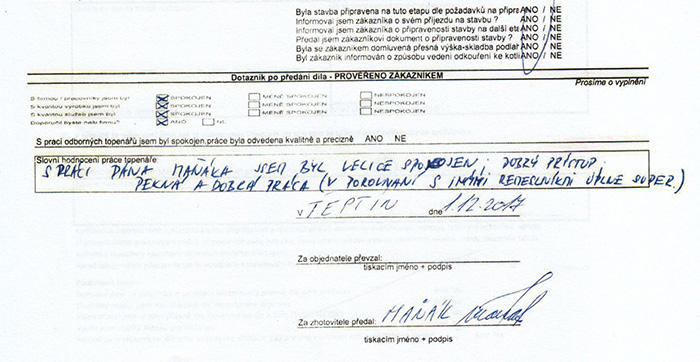 Byla stavba připravena na tuto etapu dle požadavků na připra ANO / NE
Informoval jsem zákazníka o svém příjezdu na stavbu ? ANO / NE
Informoval jsem zákazníka o připravenosti stavby na další eta ANO / NE
Předal jsem zákazníkovi dokument o připravenosti stavby ? ANO / NE
Byla se zákazníkem domluvená přesná výška-skladba podlar ANO / NE
Byl zákazník informován o způsobu vedení odkouření ke kotli ANO / NE
Dotazník po předání díla - PROVĚŘENO ZÁKAZNÍKEM
Prosíme o vyplnění
S firmou / pracovníky jsem byl SPOKOJEN MÉNĚ SPOKOJEN NESPOKOJEN
S kvalitou výrobků jsem byl SPOKOJEN MÉNĚ SPOKOJEN NESPOKOJEN
S kvalitou služeb jsem byl SPOKOJEN MÉNĚ SPOKOJEN NESPOKOJEN
Doporučil byste naši firmu? ANO NE
S prací odborných topenářů jsem byl spokojen,práce byla odvedena kvalitně a precizně ANO NE
Slovní hodnocení práce topenáře:
S PRACÍ PANA MAŇÁKA JSEM BYL VELICE SPOKOJEN; DOBRÝ PŘÍSTUP;
PĚKNÁ A DOBRÁ PRÁCE (V POROVNÁNÍ S JINÝMI ŘEMESLNÍKY ÚPLNĚ SUPER.)
v TEPTÍN dne 1.12.2017
Za objednatele převzal:
tiskacím jméno + podpis
Za zhotovitele předal: MAŇÁK
tiskacím jméno + podpis